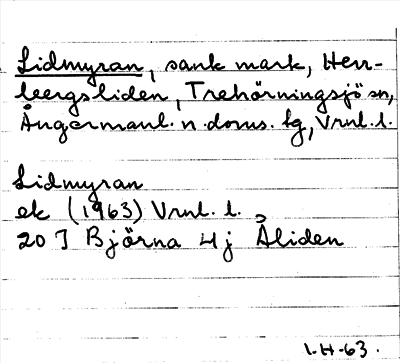 Lidmyran, sank mark, Herr-
bergsliden, Trehörningsjö sn,
Ångermanl. n. doms. tg, Vrnl. l.
Lidmyran
ek (1963) Vrnl. l.
20 J Björna 4 j Åliden
I.H-63.